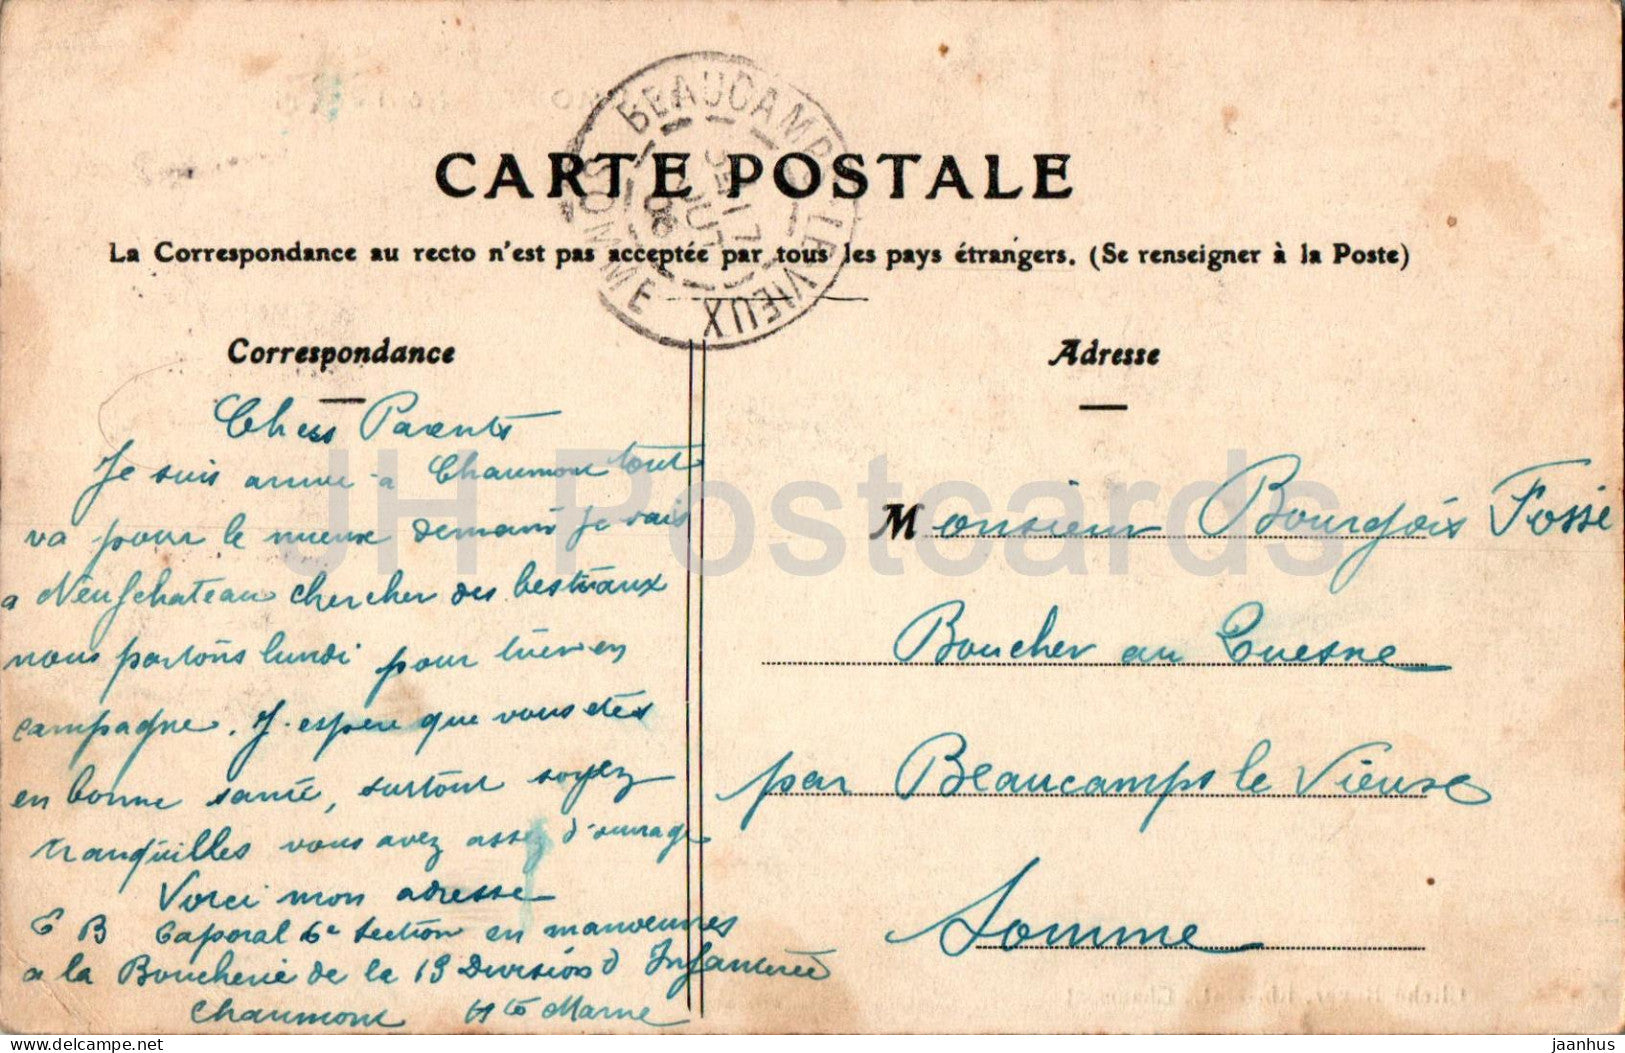 CARTE POSTALE
La Correspondance au recto n'est pas acceptée par tous les pays étrangers. (Se renseigner à la Poste)
BEAUCAMPS-LE-VIEUX
SOMME
Correspondance
Chers Parents
Je suis arrivé à Chaumont tout
va pour le mieux demain je vais
a Neufchateau chercher des bestiaux
nous partons lundi pour tuer en
campagne. J'espère que vous êtes
en bonne santé, surtout soyez
tranquilles vous avez assez d'ouvrage
Voici mon adresse
E B Caporal 6e section en manoeuvres
a la Boucherie de la 13 Division d'Infanterie
Chaumont Hte Marne
Adresse
Monsieur Bourgois Fossé
Boucher au Quesne
par Beaucamps le Vieux
Somme
JH Postcards
delcampe.net
jaanhus